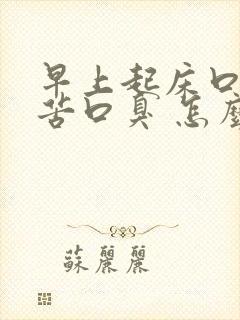 早上起床口
苦口臭 怎麼
蘇麗麗